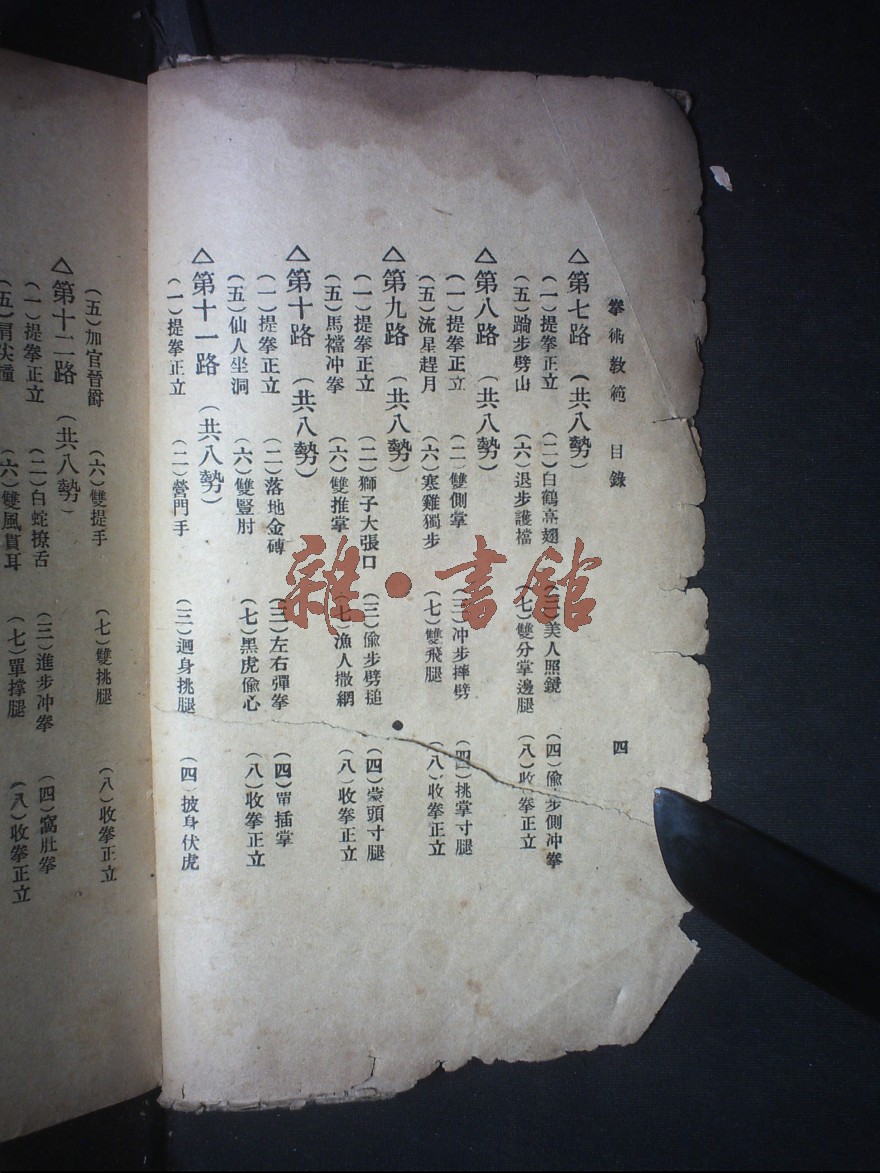 拳術教範 目錄 四
△第七路(共八勢)
(一)提拳正立 (二)白鶴亮翅 (三)美人照鏡 (四)偷步側冲拳
(五)踰步劈山 (六)退步護襠 (七)雙分掌邊腿 (八)收拳正立
△第八路(共八勢)
(一)提拳正立 (二)雙側掌 (三)冲步摔劈 (四)挑掌寸腿
(五)流星趕月 (六)寒雞獨步 (七)雙飛腿 (八)收拳正立
△第九路(共八勢)
(一)提拳正立 (二)獅子大張口 (三)偸步劈搥 (四)蒙頭寸腿
(五)馬襠冲拳 (六)雙推掌 (七)漁人撒網 (八)收拳正立
△第十路(共八勢)
(一)提拳正立 (二)落地金磚 (三)左右彈拳 (四)單插掌
(五)仙人坐洞 (六)雙豎肘 (七)黑虎偸心 (八)收拳正立
△第十一路(共八勢)
(一)提拳正立 (二)營門手 (三)迴身挑腿 (四)披身伏虎
(五)加官晉爵 (六)雙提手 (七)雙挑腿 (八)收拳正立
△第十二路(共八勢)
(一)提拳正立 (二)白蛇撩舌 (三)進步冲拳 (四)窩肚拳
(五)肩尖撞 (六)雙風貫耳 (七)單撑腿 (八)收拳正立
雜·書館